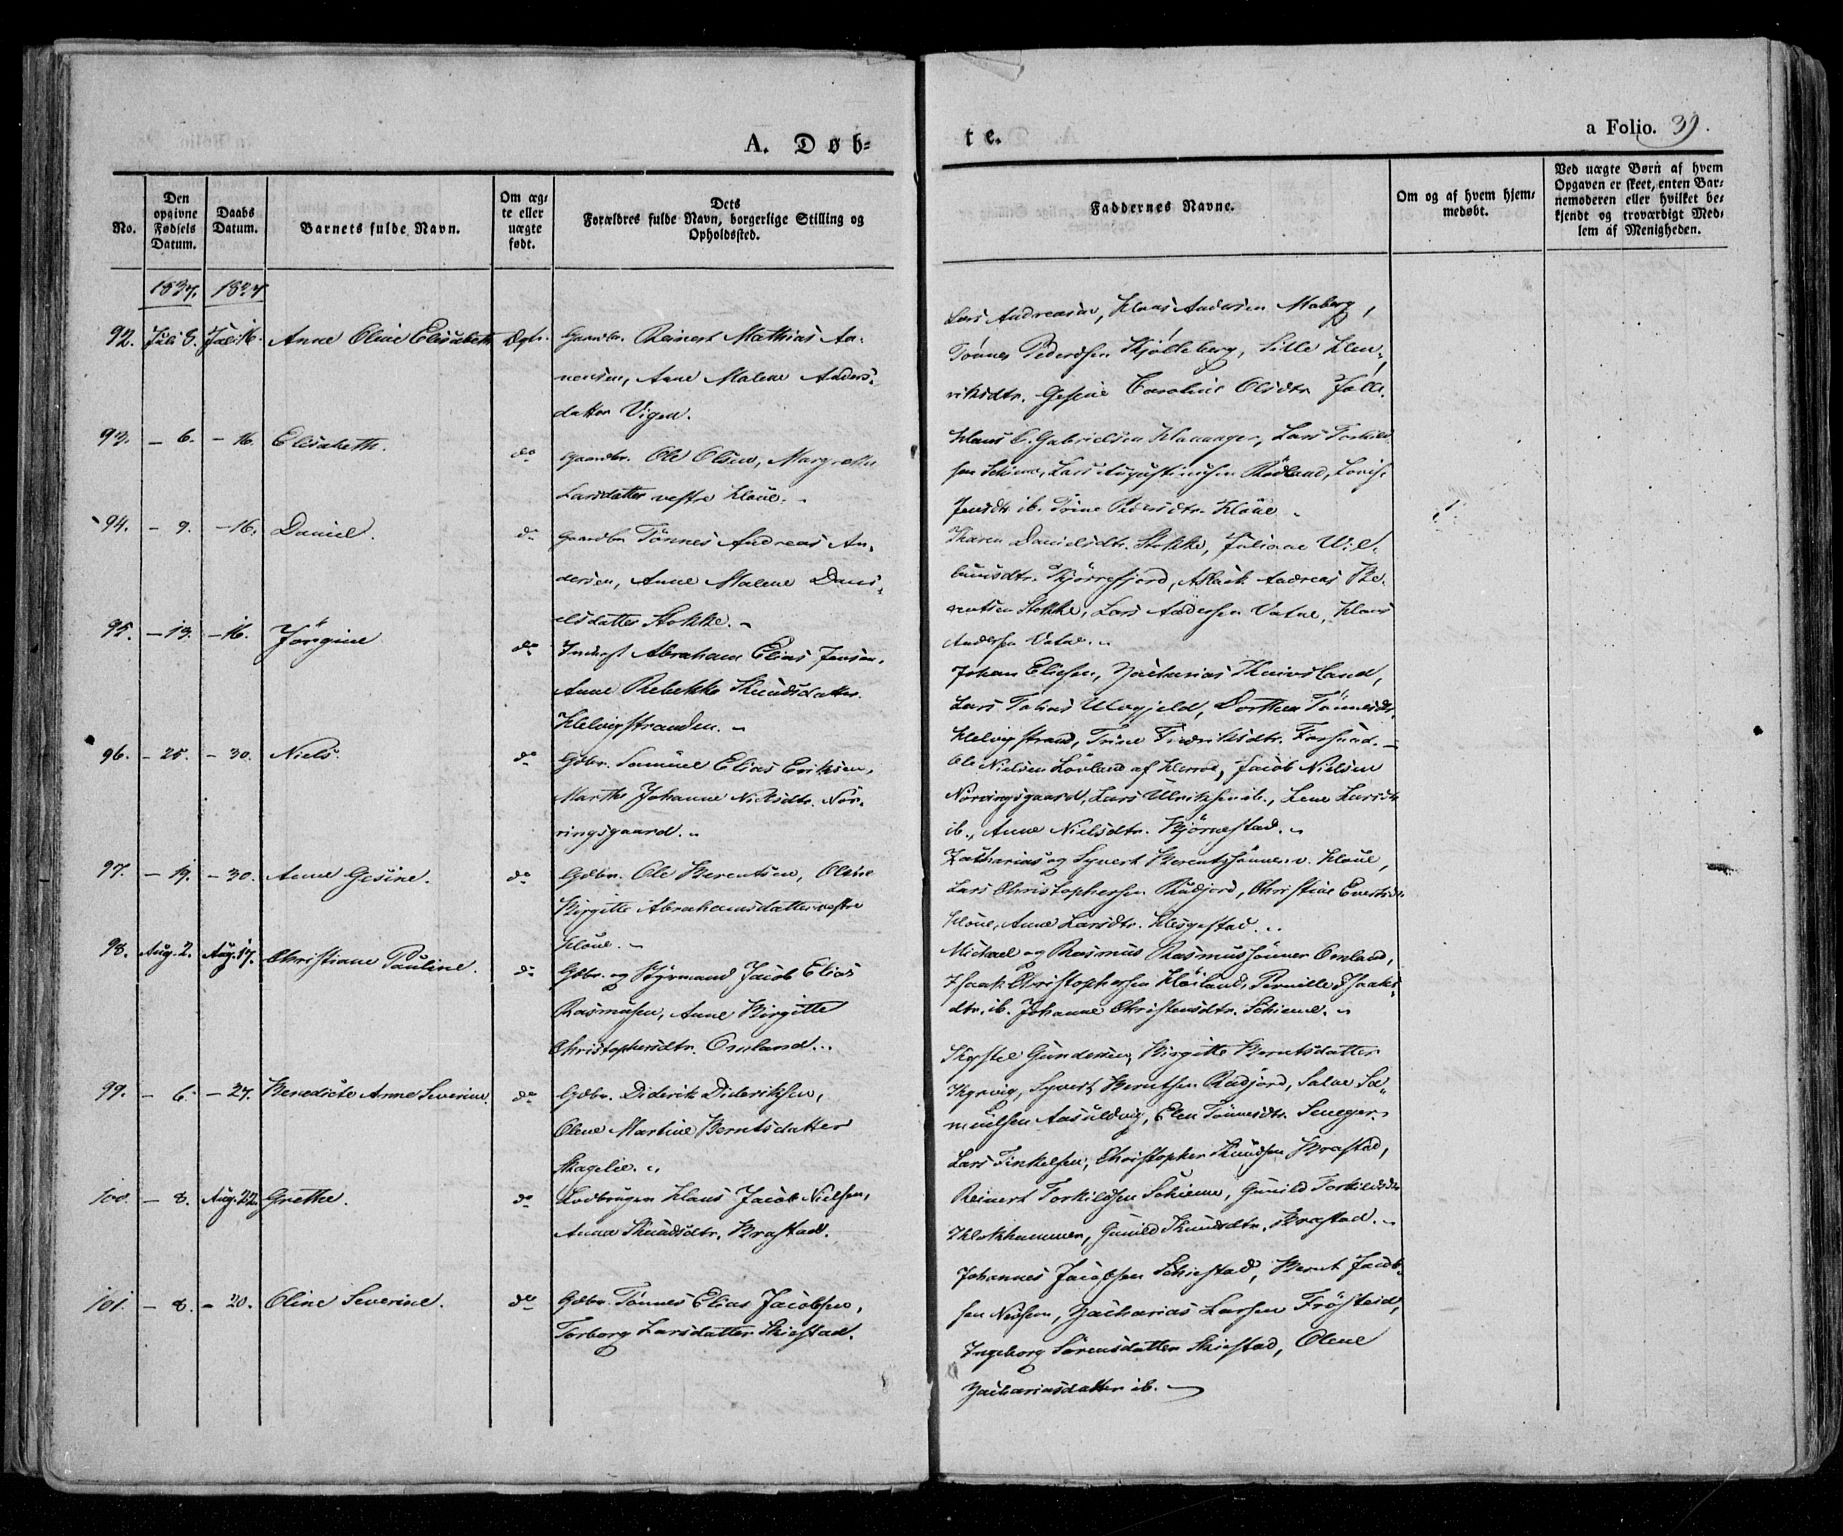 A. Døb=
te.
a Folio. 39.
No.
Den opgivne Fødsels Datum.
Daabs Datum.
Barnets fulde Navn.
Om ægte eller uægte født.
Dets
Forældres fulde Navn, borgerlige Stilling og
Opholdssted.
Faddernes Navne.
Om og af hvem hjem=
medøbt.
Ved uægte Børn af hvem
Opgaven er skeet, enten Bar=
nemoderen eller hvilket be=
kjendt og troværdigt Med=
lem af Menigheden.
1837. 1837
92. Juli 3. Juli 16. Anne Oline Elisabeth Ægte. Gaardbr. Reinert Mathias
Anne Malene Anders=
datter Vigen.
Lars Andreasen, Klaus Andersen Moberg,
Tønnes Pedersen Kjølleberg, Sille Hen=
riksdtr. Gesine Caroline Olsdtr.
93. – 6. – 16. Elisabeth. do Gaardbr. Ole Olsen, Margrethe
Larsdatter vestre Kloue.
Klaus C. Gabrielsen Lars Torkild=
sen Schieme, Lars Augustinusen
Jensdtr ib. Trine Pedersdtr. Kloue
94. – 9. – 16. Daniel. do Gaardbr Tønnes Andreas An=
dersen, Anne Malene Dani=
elsdatter Stokke.
Karen Danielsdtr. Stokke, Juliane Wil=
Aslack Andreas Be=
rentsen Stokke, Lars Andersen Vatne, Klaus
Andersen Vatne.
95. – 13. – 16. Jørgine do Inderst Abraham Elias Jensen,
Anne Rebekke Knudsdatter
Helvigstranden.
Johan Eliesen, Zacharias
Lars Tobias Ulvgjeld, Dorthea Tønnesdtr.
Helvigstrand, Trine Fredriksdtr. Farsund.
96. – 25. – 30. Niels. do Gdbr. Samuel Elias Eriksen,
Marthe Johanne Nielsdtr. Nør=
ringsgaard.
Ole Nielsen Løvland af Jacob Nielsen
Nørringsgaard, Lars Ulriksen ib., Lene Larsdtr
ib., Anne Nielsdtr. Bjørnestad.
97. – 19. – 30. Anne Gesine. do Gdbr. Ole Berentsen, Oline
Birgitte Abrahamsdatter vestre
Kloue.
Zacharias og Syvert Berentssønner v. Kloue,
Lars Christophersen Rudjord, Christine Evertsdtr
Kloue, Anne Larsdtr.
98. Aug. 2. Aug. 17. Christiane Pauline. do Gdbr. og Styrmand Jacob Elias
Rasmusen, Anne Birgitte
Christophersdtr. Omland.
Michael og Rasmus Rasmussønner Omland,
Isaak Christophersen Pernille Isaaks=
dtr. ib. Johanne Christensdtr. Schieme.
99. – 6. – 27. Benedicte Anne Severine. do Gdbr. Diderik Dideriksen,
Olene Martine Berntsdatter
Skagelie.
Gundersen, Birgitte Berntsdatter
Syvert Berntsen Rudjord, Salve Sa=
muelsen Aasuldvig, Elen Tønnesdtr.
100. – 8. Aug. 22. Grethe. do Lodbrugen Klaus Jacob Nielsen,
Anna Knudsdtr. Brastad.
Lars Christopher Knudsen Brastad,
Reinert Torkildsen Schieme, Gunild Torkildsdtr
Gunild Knudsdtr. Brastad.
101. – 8. – 20. Oline Severine. do Gdbr. Tønnes Elias Jacobsen,
Torborg Larsdatter Skiestad.
Johannes Jacobsen Skiestad, Bernt Jacob=
sen Zacharias Larsen Frøsteid,
Ingeborg Sørensdatter Skiestad, Olene
Zachariasdatter ib.